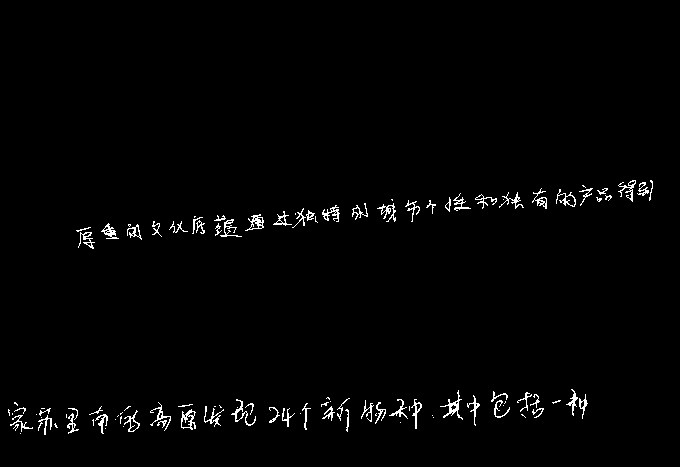 厚重的文化底蕴通过独特的城市个性和独有的产品得到
家苏里南的高原发现24个新物种,其中包括一种